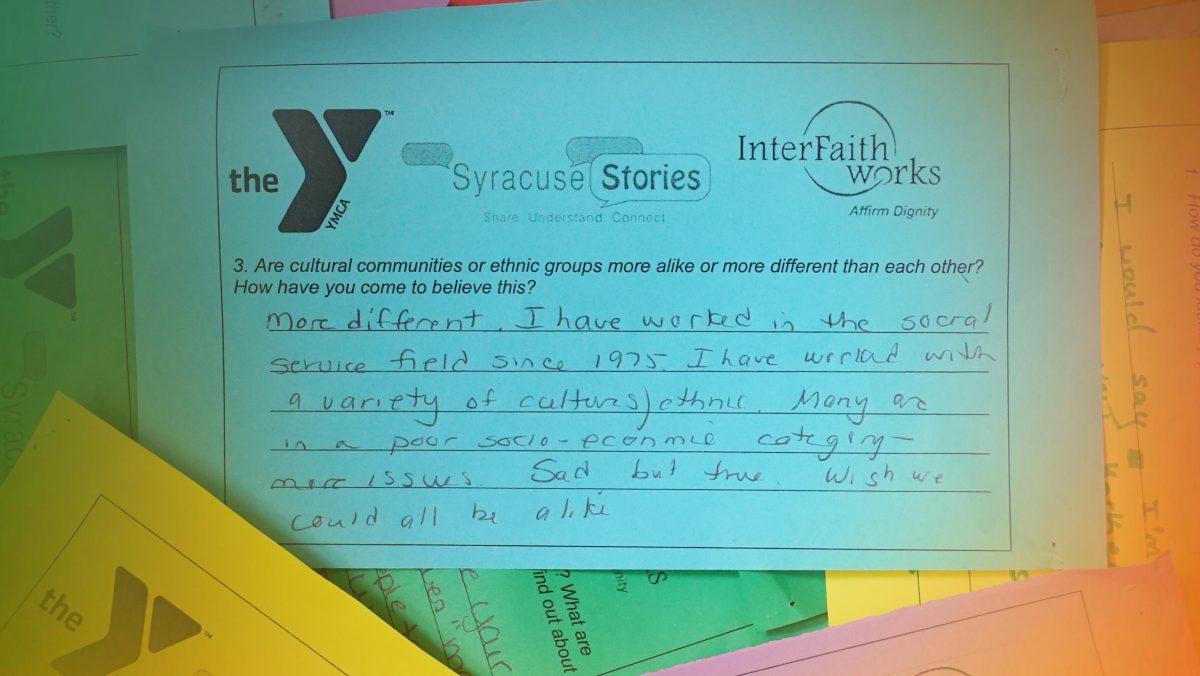 ther?
the
YMCA
™
Syracuse Stories
Share Understand Connect
InterFaith
works
Affirm Dignity
3. Are cultural communities or ethnic groups more alike or more different than each other?
How have you come to believe this?
More different. I have worked in the social
service field since 1975. I have worked with
a variety of cultures/ethnic. Many are
in a poor socio-econmic category-
more issues. Sad but true. Wish we
could all be alike
the
Syracu
1. How do you
I would say I'm
the
™
e your
? What are
ind out about
nity